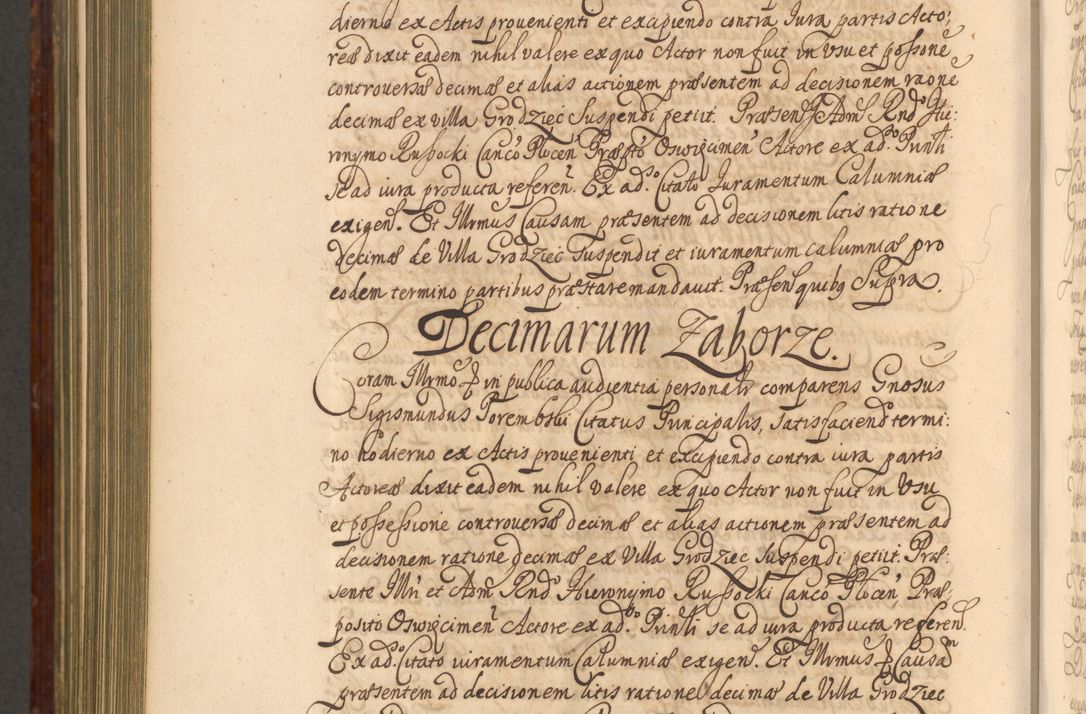 dierno ex Actis provenienti et excipiendo contra Jura partis Acto,
reæ dixit eadem nihil valere ex quo Actor non fuit in Usu et possone
controversæ decimæ et alias actionem præsentem ad decisionem raone
decimæ ex villa Grodziec Suspendi petiit. Præsen Adm Rndo Hie:
ronymo Russocki Canco Plocen Præpto Oswiecimen Actore ex ad. Prinli
se ad iura producta referen. Ex ad. Citato Juramentum Calumniæ
exigen. Et Illrmus Causam præsentem ad decisionem litis ratione
decimæ de Villa Grodziec Suspendit et iuramentum calumniæ pro
eodem termino partibus præstare mandavit. Præsen quibq Supra.
Decimarum Zaborze.
Coram Illrmo in publica audientia personalr comparens Gnosus
Sigismundus Porembski Citatus Principalis, satisfaciend termi:
no hodierno ex Actis provenienti et excipiendo contra iura partis
Actoreæ dixit eadem nihil valere ex quo Actor non fuit in Usu
et possessione controversæ decimæ et alias actionem præsentem ad
decisionem ratione decimæ ex Villa Grodziec Suspendi petiit. Præ:
sente Illri et Adm Rndo Hieronymo Russocki Canco Plocen, Præ,
posito Oswiecimen Actore ex ad. Prinli se ad iura producta referen.
Ex ad. Citato iuramentum Calumniæ exigen. Et Illrmus Causam
præsentem ad decisionem litis ratione decimæ de Villa Grodziec